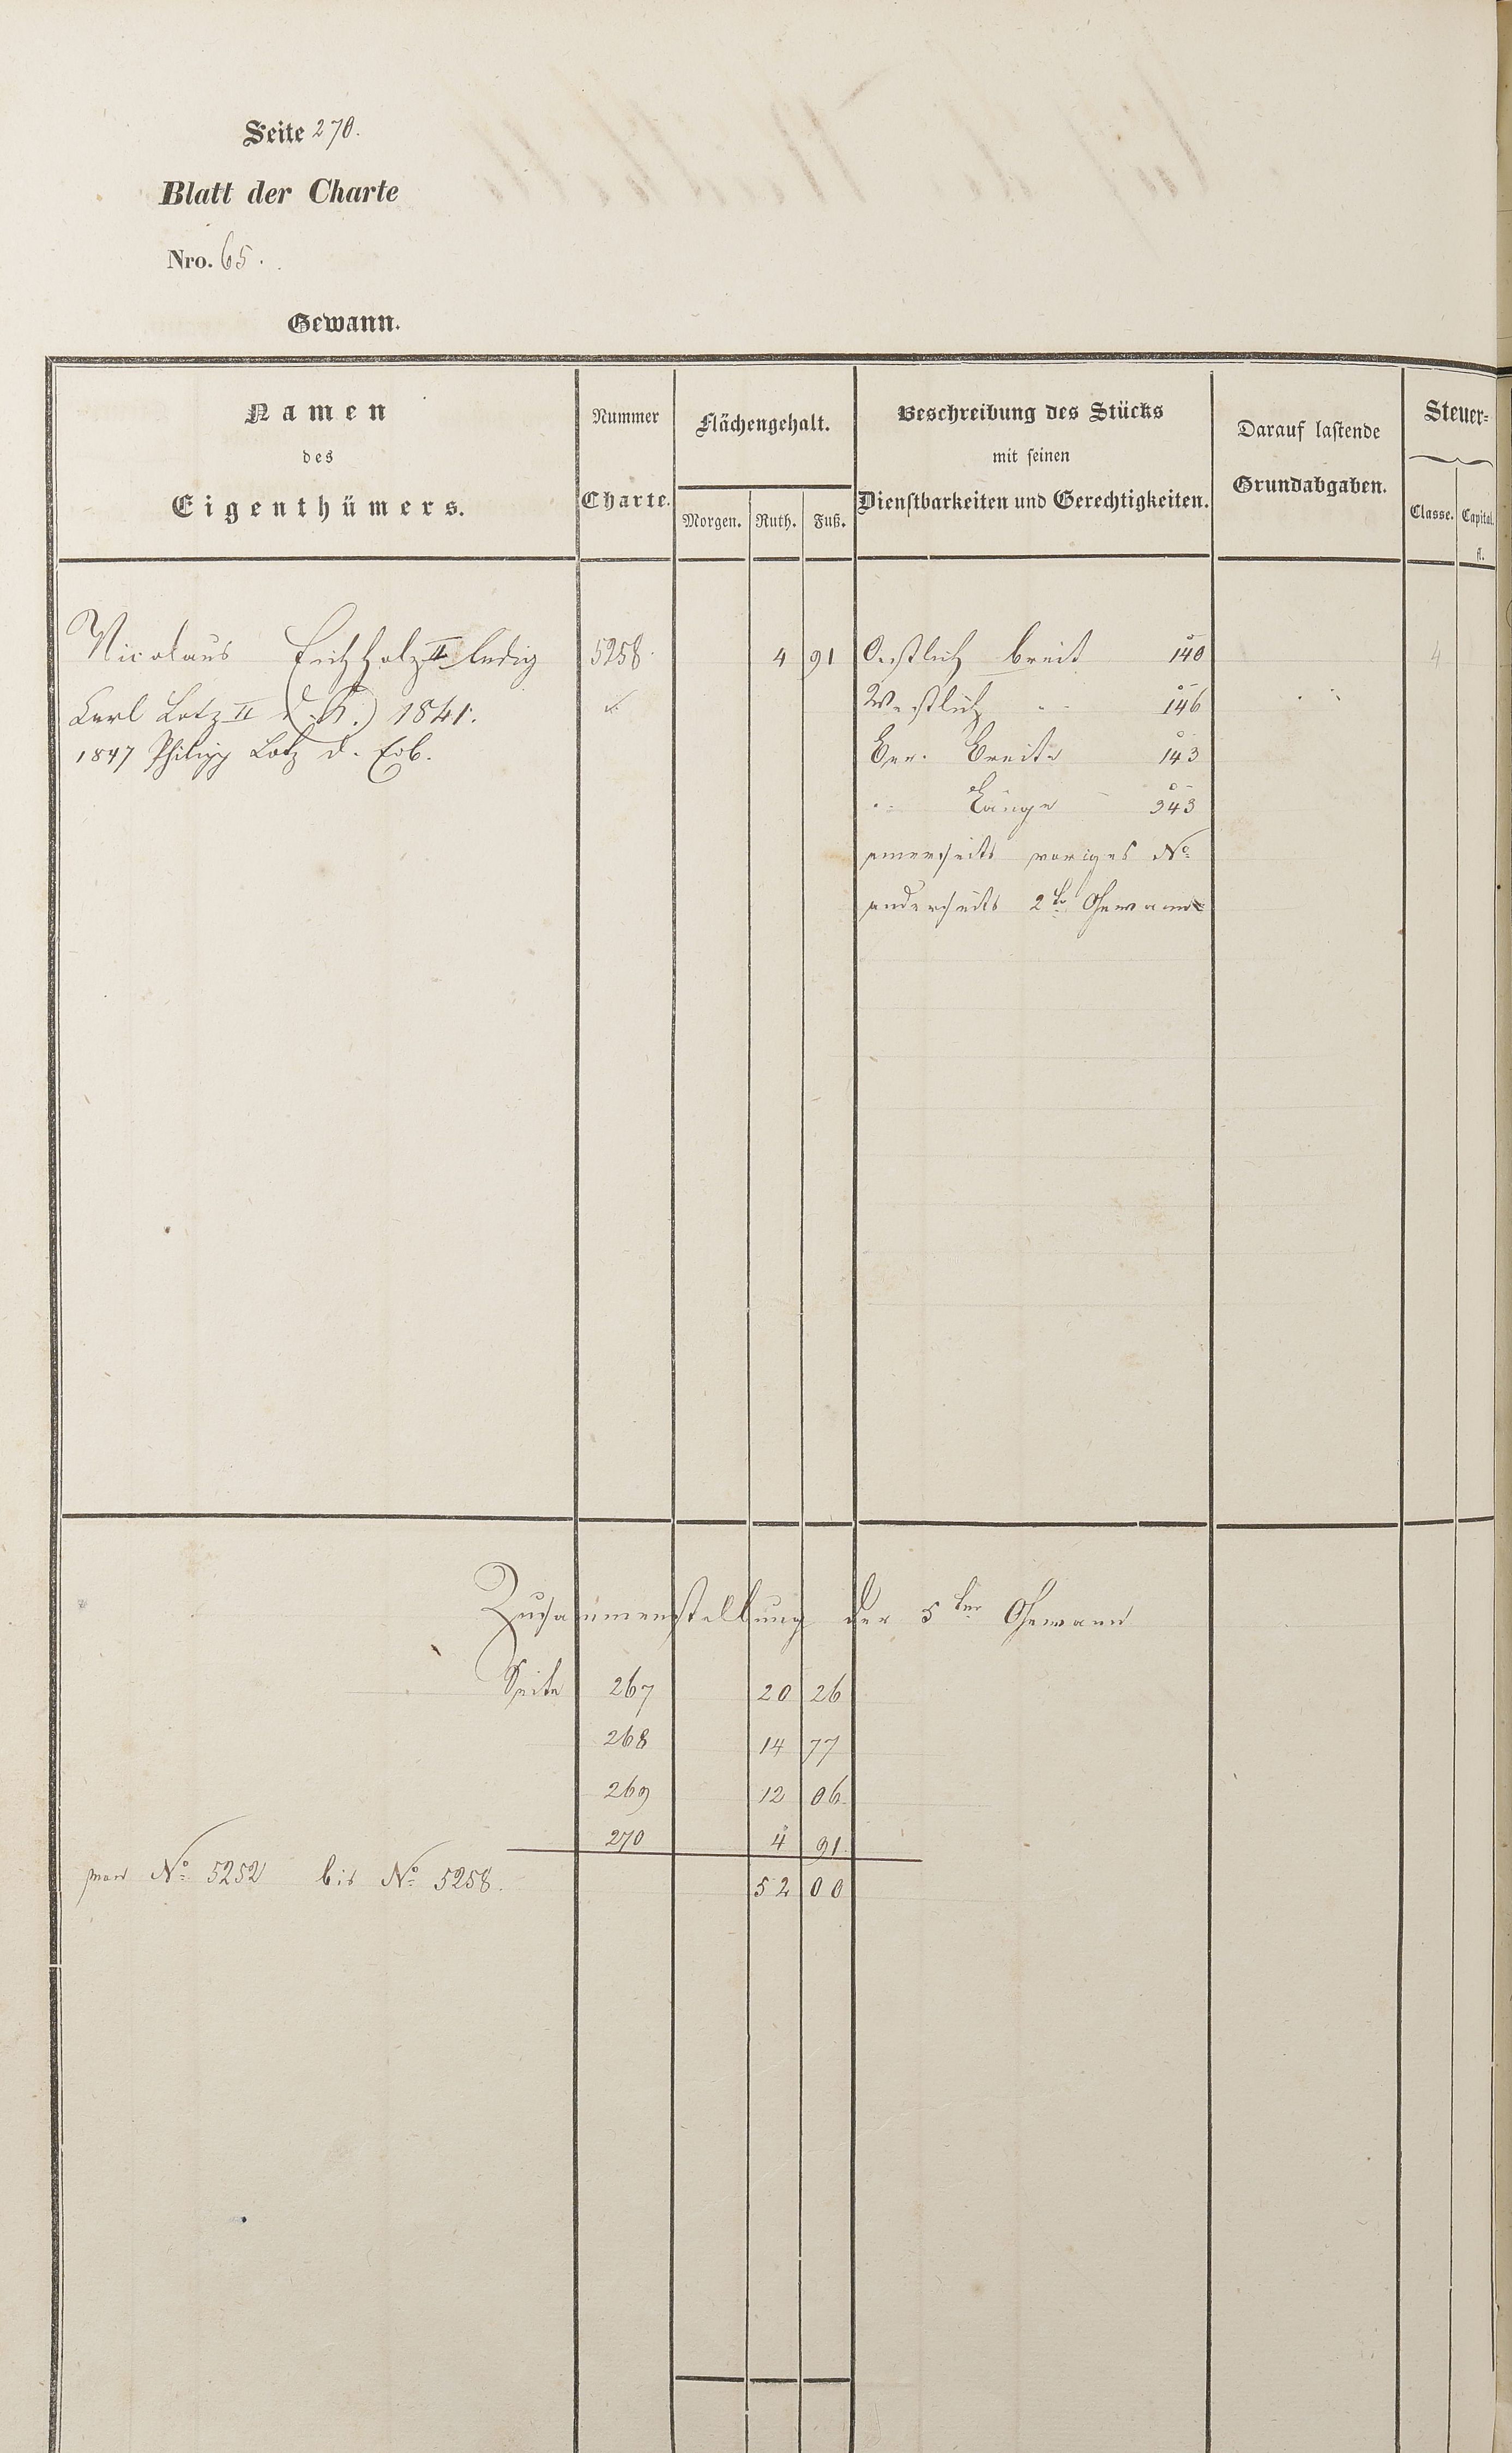 Seite 270.
Blatt der Charte
Nro. 65.
Gewann.
Namen
des
Eigenthümers.
Nummer
Charte.
Flächengehalt.
Morgen. Ruth. Fuß.
Beschreibung des Stücks
mit seinen
Dienstbarkeiten und Gerechtigkeiten.
Darauf lastende
Grundabgaben.
Steuer=
Classe. Capital.
fl.
Nicolaus Eichholz II ledig 5258. 4 91 Oestlich breit 140 4
Carl Lotz II 1841. Westlich " 146
1847 Philipp Lotz d. Erb. Ber. Breite 143
" Länge 343
einerseits voriges No
anderseits 2te Gewann
Zusammenstellung der 5ten Gewann
Seite 267 20 26
268 14 77
269 12 06
270 4 91
von No 5252 bis No 5258. 52 00